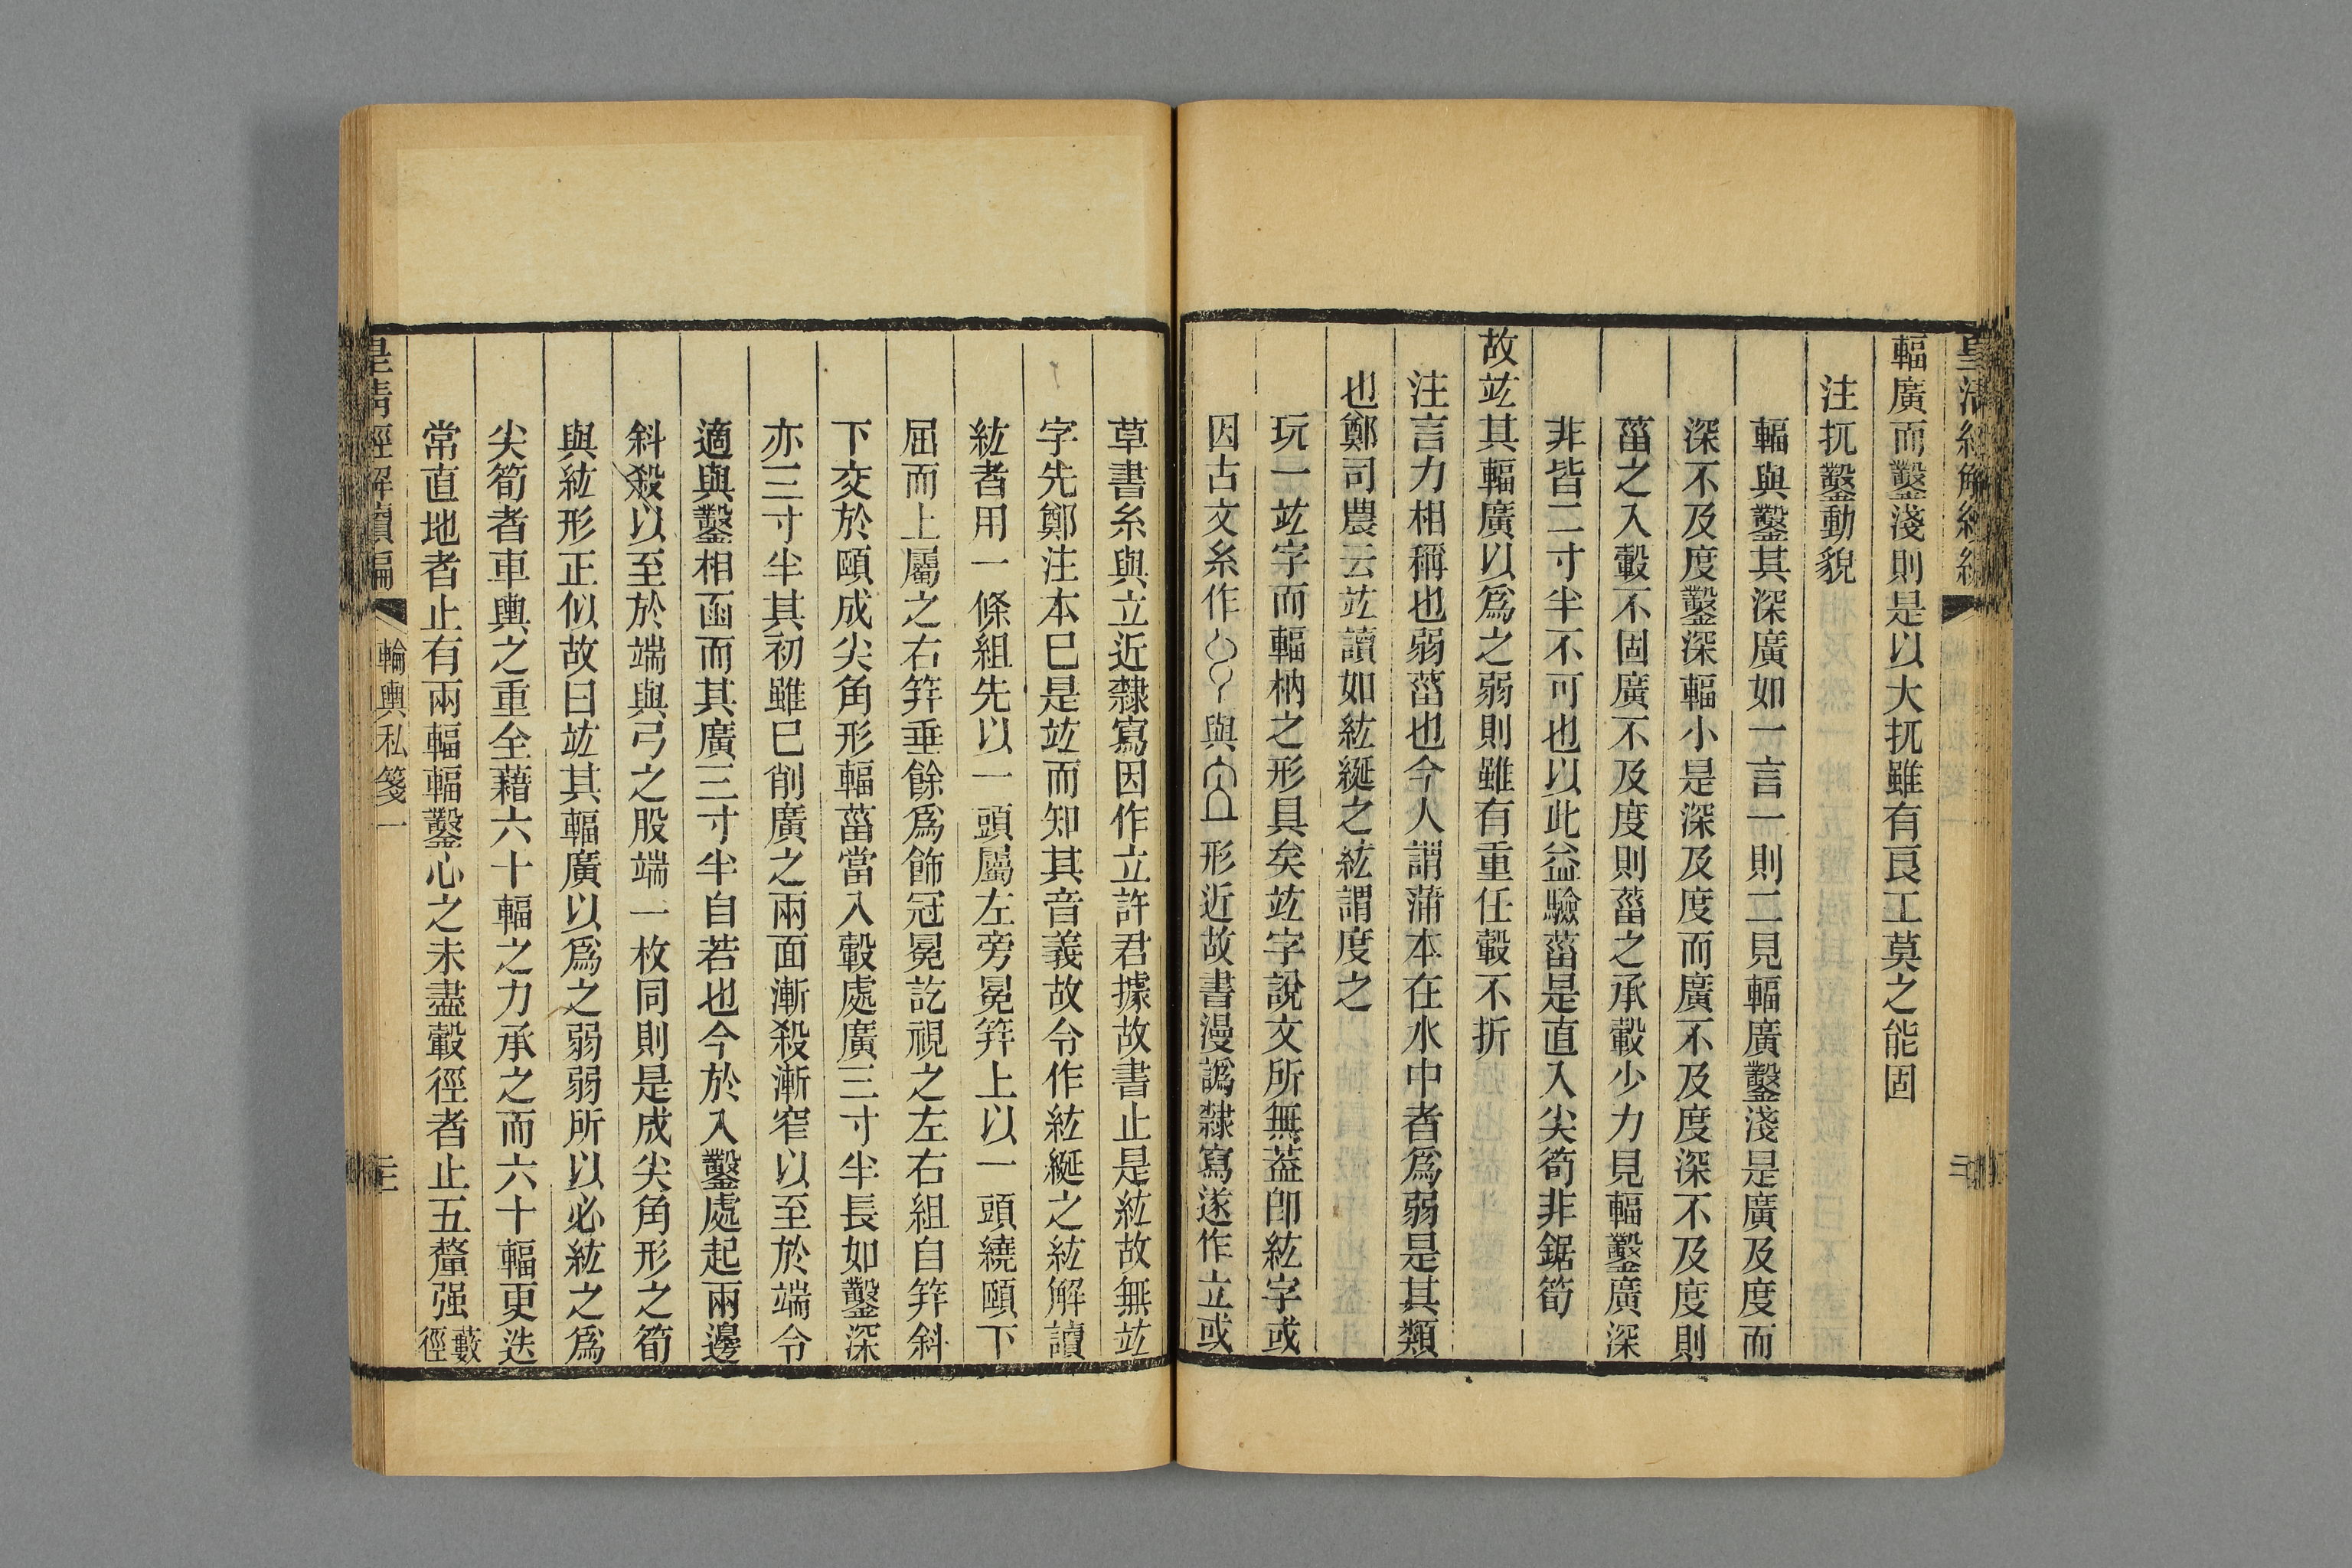 輻廣而鑿淺則是以大扤雖有良工莫之能固
注扤鑿動貌
輻與鑿其深廣如一言一則二見輻廣鑿淺是廣及度而
深不及度鑿深輻小是深及度而廣不及度深不及度則
菑之入轂不固廣不及度則菑之承轂少力見輻鑿廣深
非皆二寸半不可也以此益驗菑是直入尖筍非鋸筍
故竑其輻廣以爲之弱則雖有重任轂不折
注言力相稱也弱菑也今人謂蒲本在水中者爲弱是其類
也鄭司農云竑讀如紘綖之紘謂度之
玩一竑字而輻枘之形具矣竑字說文所無葢卽紘字或
因古文糸作與形近故書漫譌隸寫遂作立或
草書糸與立近隸寫因作立許君據故書止是紘故無竑
字先鄭注本已是竑而知其音義故令作紘綖之紘解讀
紘者用一條組先以一頭屬左旁冕笄上以一頭繞頤下
屈而上屬之右笄垂餘爲飾冠冕訖視之左右組自笄斜
下交於頤成尖角形輻菑當入轂處廣三寸半長如鑿深
亦三寸半其初雖已削廣之兩面漸殺漸窄以至於端令
適與鑿相函而其廣三寸半自若也今於入鑿處起兩邊
斜殺以至於端與弓之股端一枚同則是成尖角形之筍
與紘形正似故曰竑其輻廣以爲之弱弱所以必紘之爲
尖筍者車輿之重全藉六十輻之力承之而六十輻更迭
常直地者止有兩輻輻鑿心之未盡轂徑者止五釐强藪徑
皇清經解續編 輪輿私箋一